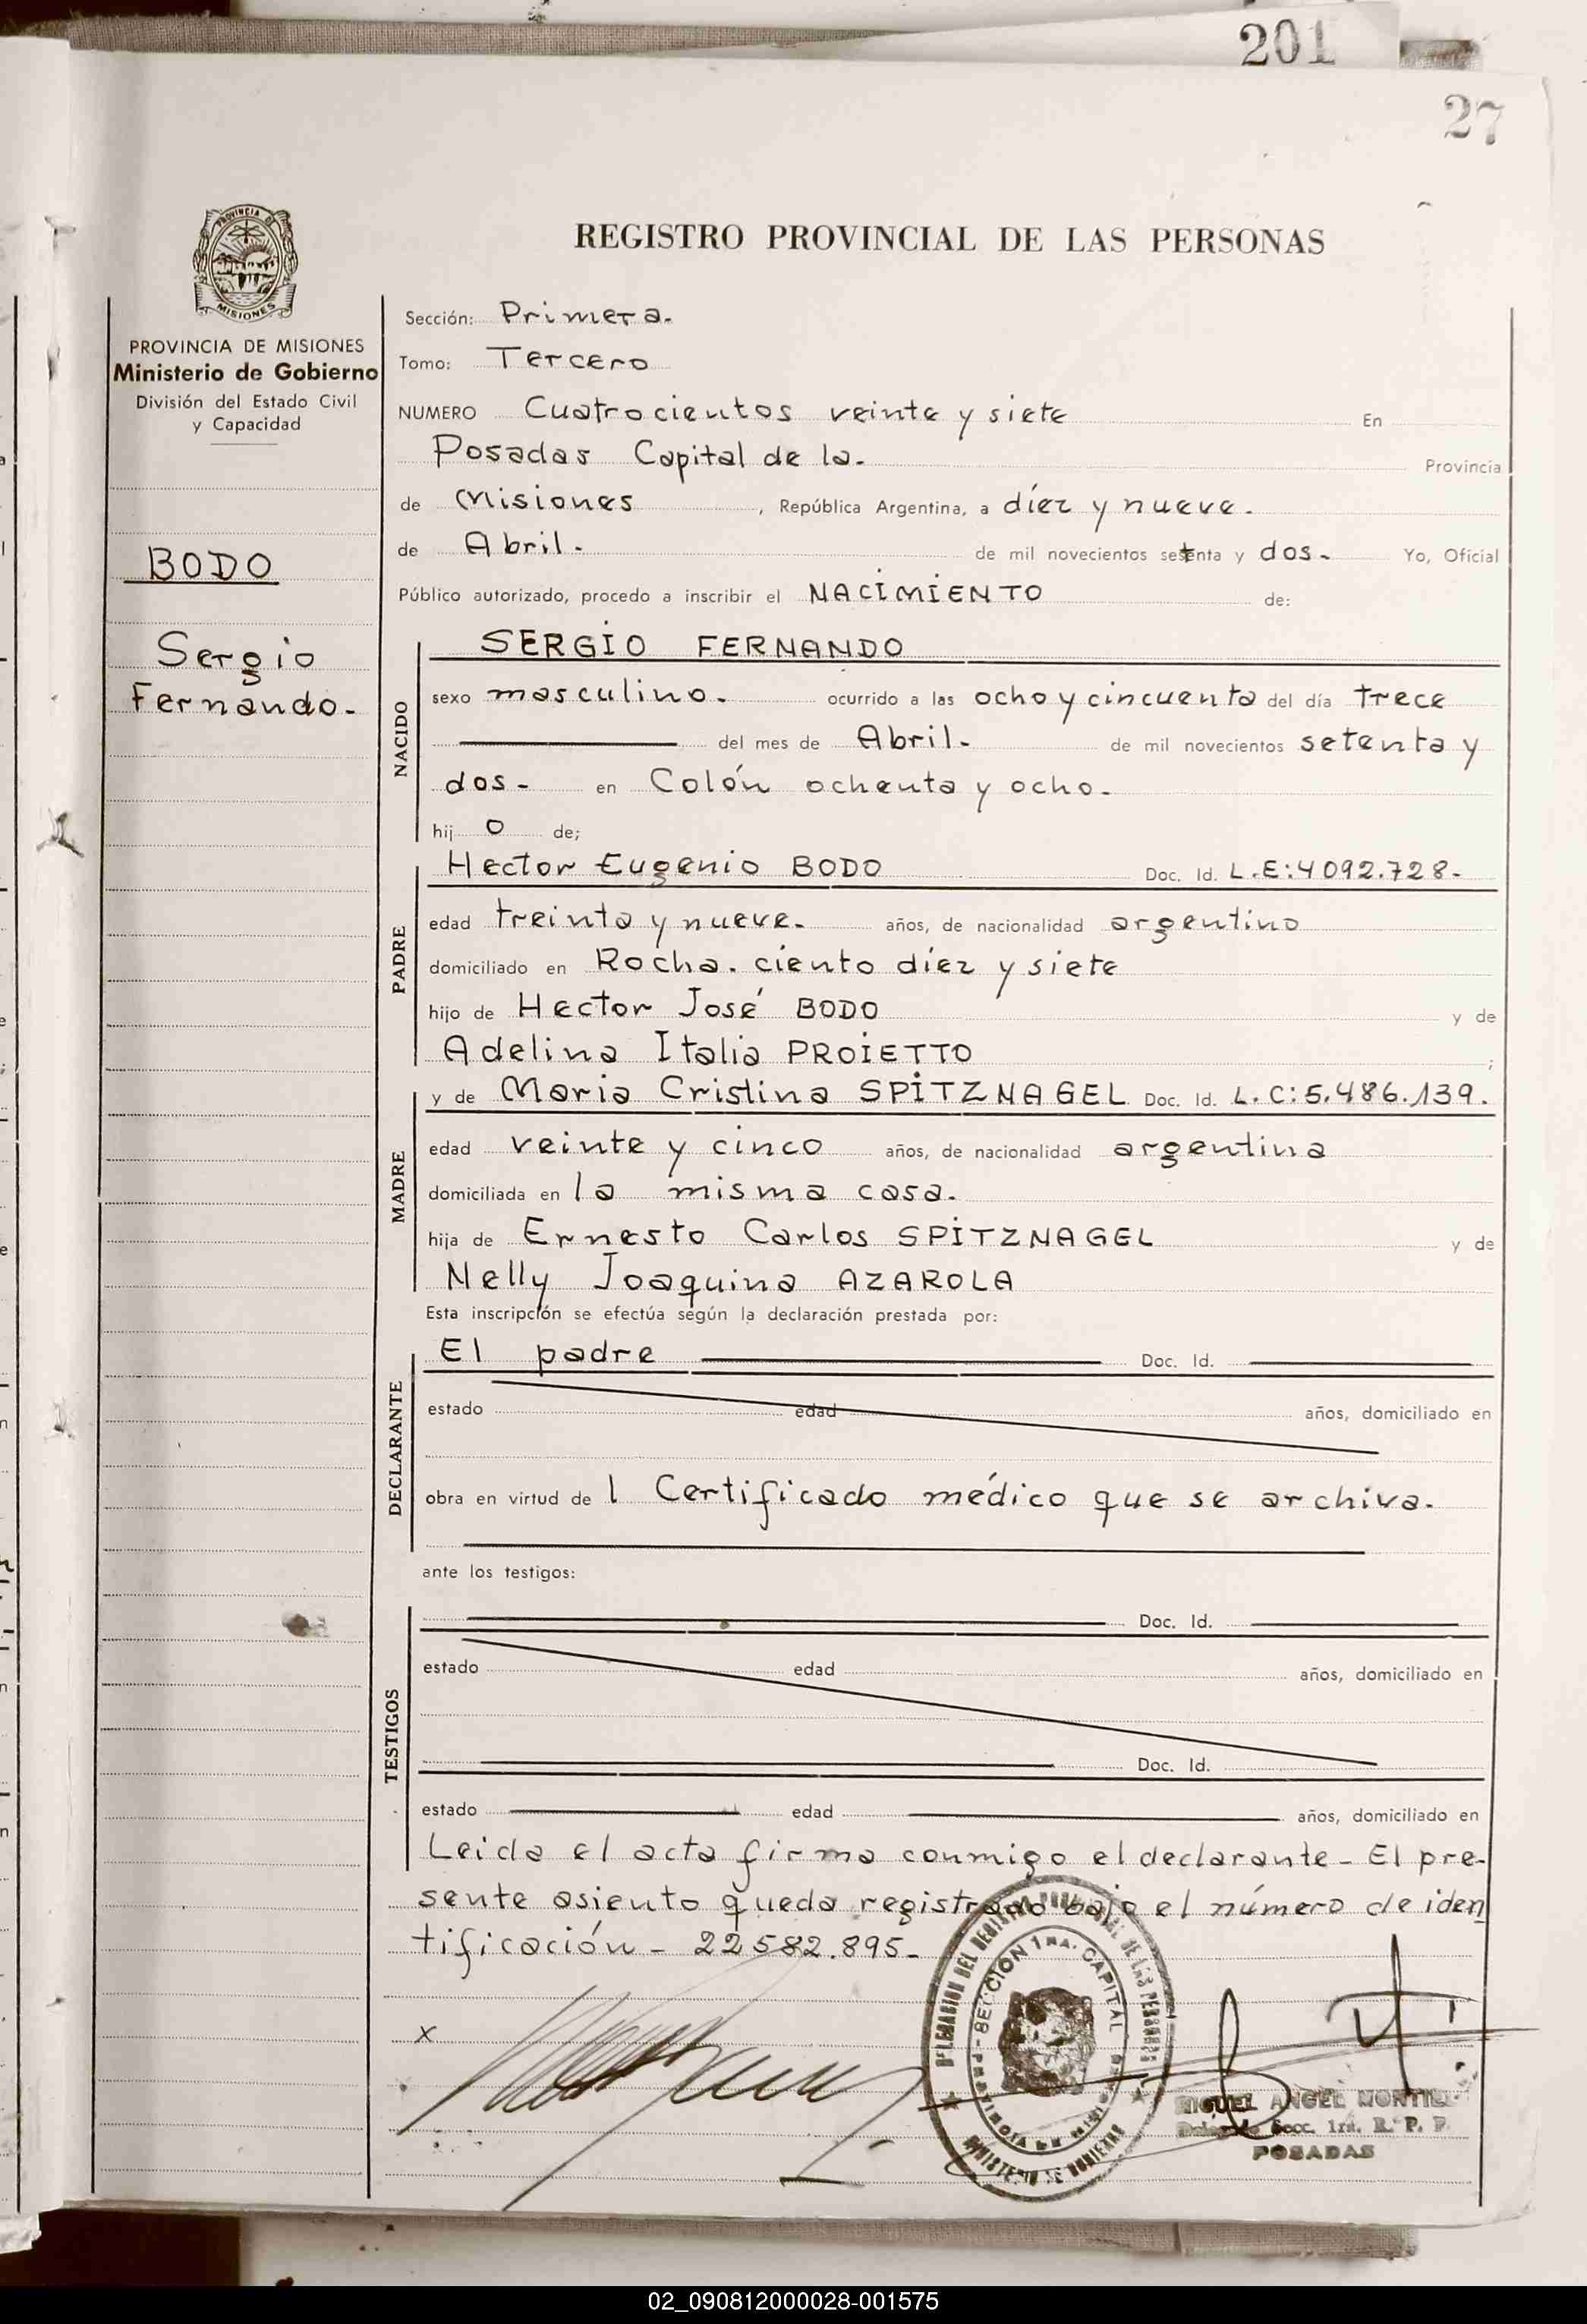 201
27
PROVINCIA DE
MISIONES
REGISTRO PROVINCIAL DE LAS PERSONAS
PROVINCIA DE MISIONES
Ministerio de Gobierno
División del Estado Civil
y Capacidad
BODO
Sergio
Fernando-
Sección: Primera.
Tomo: Tercero
NUMERO Cuatrocientos veinte y siete En
Posadas Capital de la. Provincia
de Misiones, República Argentina, a díez y nueve.
de Abril. de mil novecientos setenta y dos. Yo, Oficial
Público autorizado, procedo a inscribir el NACIMIENTO de:
NACIDO
SERGIO FERNANDO
sexo masculino. ocurrido a las ocho y cincuenta del día trece
del mes de Abril. de mil novecientos setenta y
dos. en Colón ochenta y ocho.
hij o de;
PADRE
Hector Eugenio BODO Doc. Id. L.E:4092.728.
edad treinta y nueve. años, de nacionalidad argentino
domiciliado en Rocha. ciento díez y siete
hijo de Hector José BODO y de
Adelina Italia PROIETTO ;
MADRE
y de Maria Cristina SPITZNAGEL Doc. Id. L.C:5.486.139.
edad veinte y cinco años, de nacionalidad argentina
domiciliada en la misma casa.
hija de Ernesto Carlos SPITZNAGEL y de
Nelly Joaquina AZAROLA
Esta inscripción se efectúa según la declaración prestada por:
DECLARANTE
El padre Doc. Id.
estado edad años, domiciliado en
obra en virtud de l Certificado médico que se archiva.
ante los testigos:
TESTIGOS
Doc. Id.
estado edad años, domiciliado en
Doc. Id.
estado edad años, domiciliado en
Leida el acta firma conmigo el declarante - El pre-
sente asiento queda registrado bajo el número de iden
tificación - 22582.895-
x
DELEGACION DEL REGISTRO PROVINCIAL DE LAS PERSONAS
SECCION 1RA. CAPITAL
PROVINCIA DE MISIONES
MINISTERIO DE GOBIERNO
MIGUEL ANGEL
Secc. 1ra. R. P. P.
POSADAS
02_090812000028-001575